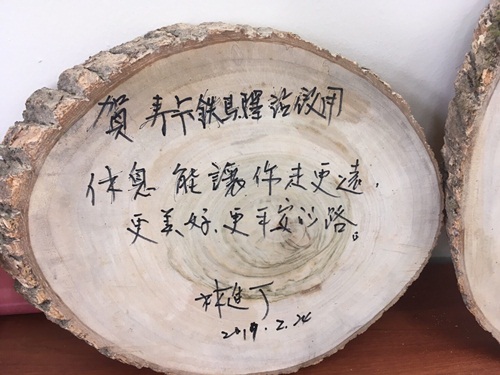 賀 寿卡鉄馬驛站啟用
休息能讓你走更遠,
更美好.更平安的路。
林進丁
2019.2.24